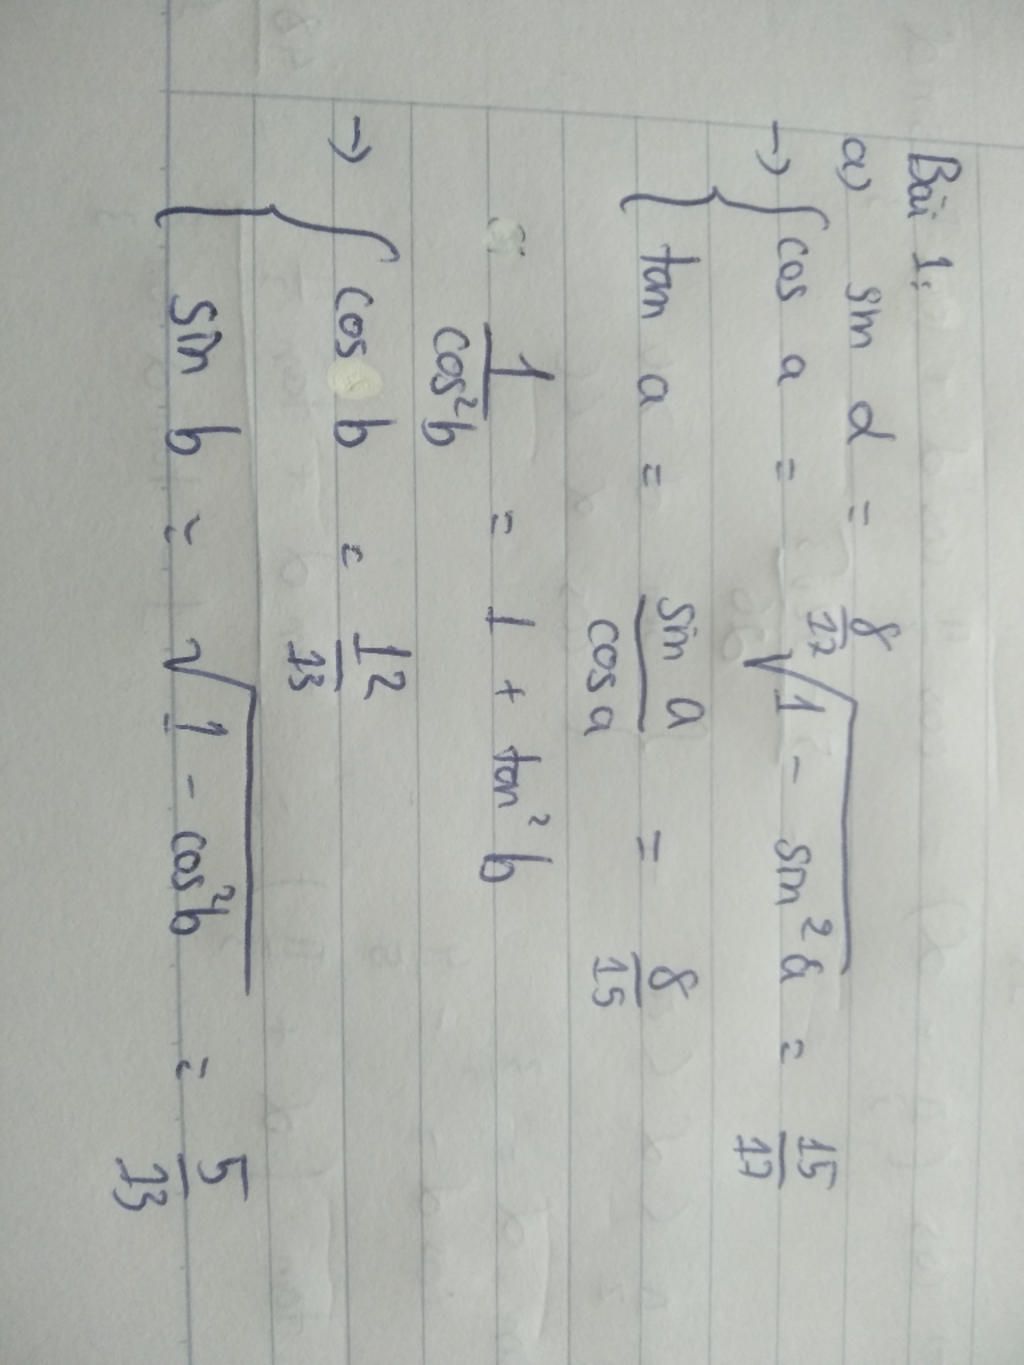 Bài 1:
a) sin α = 8/17
→ { cos a = √(1 - sin²a) = 15/17
tan a = sin a / cos a = 8/15
1/cos²b = 1 + tan²b
→ { cos b = 12/13
sin b = √(1 - cos²b) = 5/13